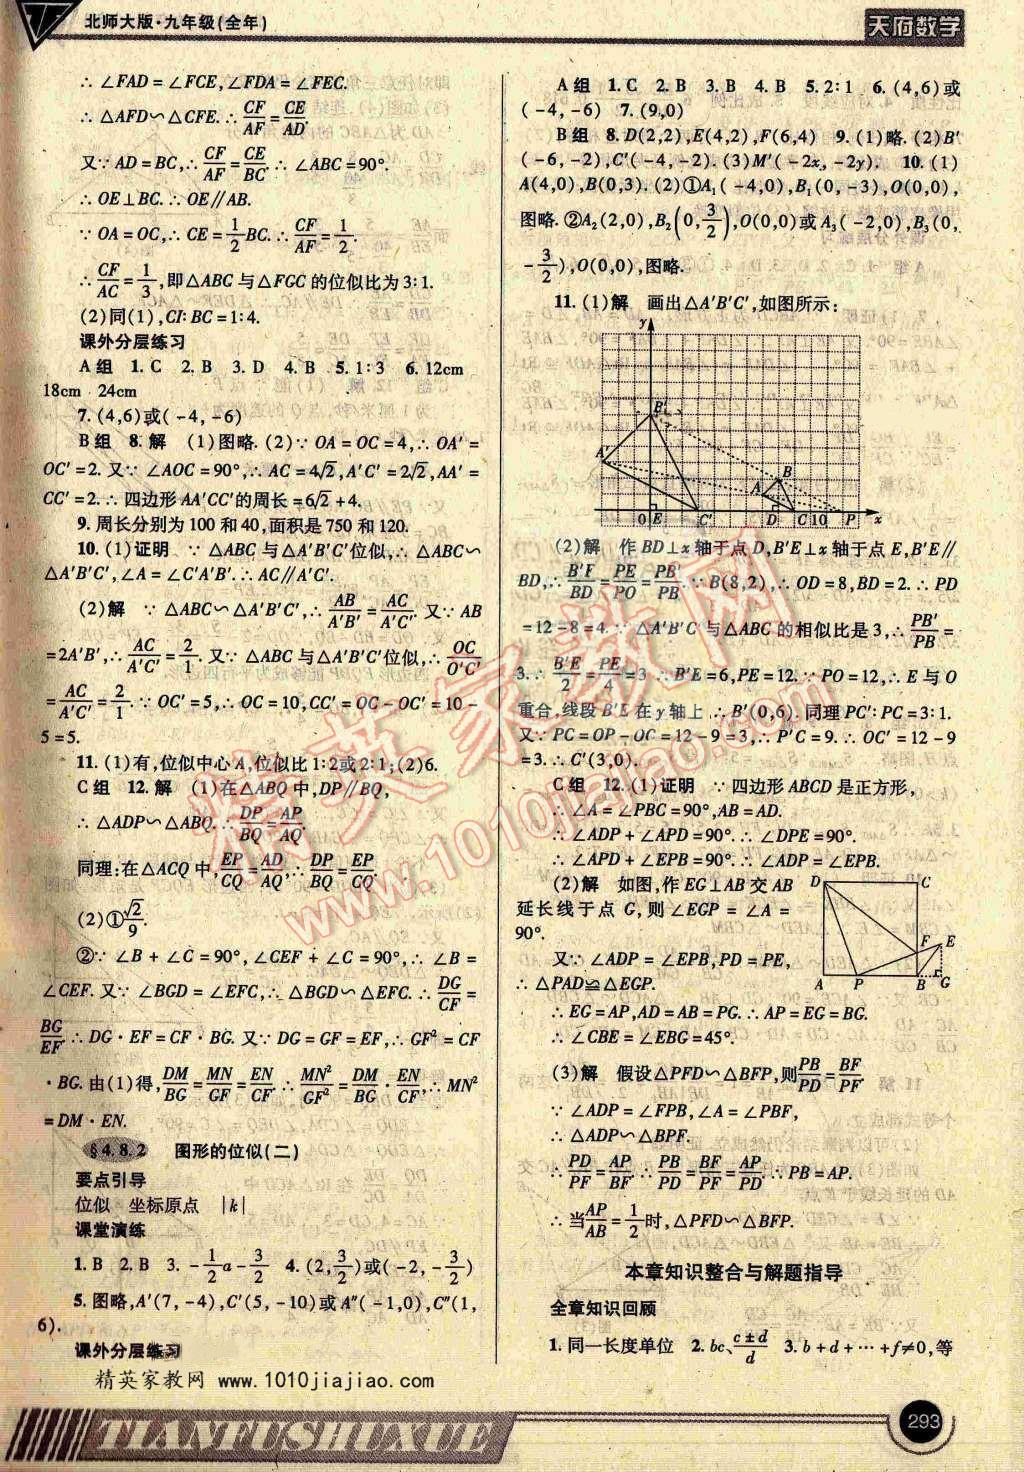 北师大版·九年级(全年)
天府数学
∴ ∠FAD = ∠FCE, ∠FDA = ∠FEC.
∴ △AFD∽△CFE. ∴ CF/AF = CE/AD.
又∵ AD = BC, ∴ CF/AF = CE/BC. ∴ ∠ABC = 90°.
∴ OE⊥BC. ∴ OE∥AB.
∵ OA = OC, ∴ CE = 1/2 BC. ∴ CF/AF = 1/2.
∴ CF/AC = 1/3, 即△ABC 与△FGC 的位似比为 3:1.
(2)同(1), CI:BC = 1:4.
课外分层练习
A 组 1. C 2. B 3. D 4. B 5. 1:3 6. 12cm
18cm 24cm
7. (4,6)或(-4,-6)
B 组 8. 解 (1)图略. (2)∵ OA = OC = 4, ∴ OA′ =
OC′ = 2. 又∵ ∠AOC = 90°, ∴ AC = 4√2, A′C′ = 2√2, AA′ =
CC′ = 2. ∴ 四边形 AA′CC′的周长 = 6√2 + 4.
9. 周长分别为 100 和 40, 面积是 750 和 120.
10. (1)证明 ∵ △ABC 与△A′B′C′位似, ∴ △ABC∽
△A′B′C′, ∠A = ∠C′A′B′. ∴ AC∥A′C′.
(2)解 ∵ △ABC∽△A′B′C′, ∴ AB/A′B′ = AC/A′C′. 又∵ AB
= 2A′B′, ∴ AC/A′C′ = 2/1. 又∵ △ABC 与△A′B′C′位似, ∴ OC/O′C′
= AC/A′C′ = 2/1. ∵ OC′ = 5, ∴ OC = 10, CC′ = OC - OC′ = 10 -
5 = 5.
11. (1)有, 位似中心 A, 位似比 1:2 或 2:1; (2)6.
C 组 12. 解 (1)在△ABQ 中, DP∥BQ,
∴ △ADP∽△ABQ. ∴ DP/BQ = AP/AQ.
同理: 在△ACQ 中, EP/CQ = AD/AQ, ∴ DP/BQ = EP/CQ.
(2)①√2/9.
②∵ ∠B + ∠C = 90°, ∠CEF + ∠C = 90°, ∴ ∠B =
∠CEF. 又∵ ∠BGD = ∠EFC, ∴ △BGD∽△EFC. ∴ DG/CF =
BG/EF. ∴ DG · EF = CF · BG. 又∵ DG = GF = EF, ∴ GF² = CF
· BG. 由(1)得, DM/BG = MN/GF = EN/CF. ∴ MN²/GF² = DM/BG · EN/CF. ∴ MN²
= DM · EN.
§4.8.2 图形的位似(二)
要点引导
位似 坐标原点 |k|
课堂演练
1. B 2. B 3. -1/2 a - 3/2 4. (2, 3/2)或(-2, -3/2)
5. 图略, A′(7,-4), C′(5,-10)或 A″(-1,0), C″(1,
6).
课外分层练习
A 组 1. C 2. B 3. B 4. B 5. 2:1 6. (4,6)或
(-4,-6) 7. (9,0)
B 组 8. D(2,2), E(4,2), F(6,4) 9. (1)略. (2)B′
(-6,-2), C′(-4,-2). (3)M′(-2x,-2y). 10. (1)
A(4,0), B(0,3). (2)①A₁(-4,0), B₁(0,-3), O(0,0),
图略. ②A₂(2,0), B₂(0, 3/2), O(0,0)或 A₃(-2,0), B₃(0,
-3/2), O(0,0), 图略.
11. (1)解 画出△A′B′C′, 如图所示:
y
B′
A′
B
A
0 E C′ D C 10 P x
(2)解 作 BD⊥x 轴于点 D, B′E⊥x 轴于点 E, B′E∥
BD, ∴ B′E/BD = PE/PO = PB′/PB. ∵ B(8,2), ∴ OD = 8, BD = 2. ∴ PD
= 12 - 8 = 4. ∵ △A′B′C 与△ABC 的相似比是 3, ∴ PB′/PB =
3. ∴ B′E/2 = PE/4 = 3 ∴ B′E = 6, PE = 12. ∵ PO = 12, ∴ E 与 O
重合, 线段 B′E 在 y 轴上. ∴ B′(0,6). 同理 PC′:PC = 3:1.
又∵ PC = OP - OC = 12 - 9 = 3, ∴ P′C = 9. ∴ OC′ = 12 - 9
= 3. ∴ C′(3,0).
C 组 12. (1)证明 ∵ 四边形 ABCD 是正方形,
∴ ∠A = ∠PBC = 90°, AB = AD.
∴ ∠ADP + ∠APD = 90°. ∴ ∠DPE = 90°.
∴ ∠APD + ∠EPB = 90°. ∴ ∠ADP = ∠EPB.
(2)解 如图, 作 EG⊥AB 交 AB
延长线于点 G, 则∠EGP = ∠A =
90°.
又∵ ∠ADP = ∠EPB, PD = PE,
∴ △PAD≌△EGP.
D C
F E
A P B G
∴ EG = AP, AD = AB = PG. ∴ AP = EG = BG.
∴ ∠CBE = ∠EBG = 45°.
(3)解 假设△PFD∽△BFP, 则 PB/PD = BF/PF.
∵ ∠ADP = ∠FPB, ∠A = ∠PBF,
∴ △ADP∽△BPF.
∴ PD/PF = AP/BF. ∴ PB/PD = BF/PF = AP/PD. ∴ PB = AP.
∴ 当 AP/AB = 1/2 时, △PFD∽△BFP.
本章知识整合与解题指导
全章知识回顾
1. 同一长度单位 2. bc、(c±d)/d 3. b + d + … + f≠0, 等
精英家教网
www.1010jiajiao.com
精英家教网 www.1010jiajiao.com
TIANFUSHUXUE
293